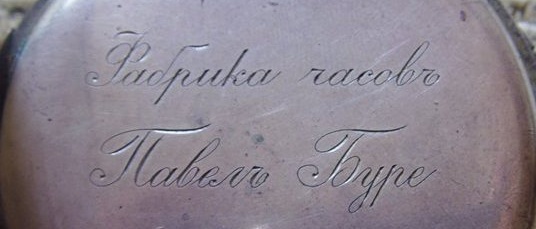 Фабрика часовъ
Павелъ Буре